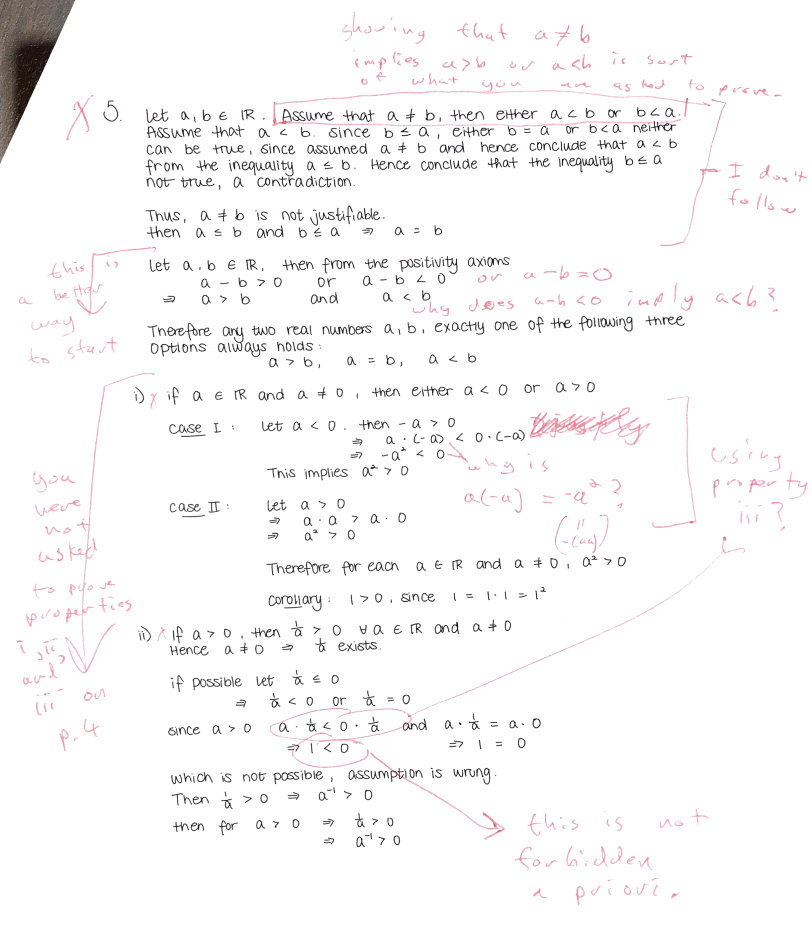 showing that a ≠ b
implies a>b or a<b is sort
of what you are asked to prove.
X 5. Let a, b ∈ ℝ. Assume that a ≠ b, then either a < b or b < a.
Assume that a < b. Since b ≤ a, either b = a or b < a neither
can be true, since assumed a ≠ b and hence conclude that a < b
from the inequality a ≤ b. Hence conclude that the inequality b ≤ a
not true, a contradiction.
I don't
follow
Thus, a ≠ b is not justifiable.
then a ≤ b and b ≤ a ⇒ a = b
this is
a better
way
to start
Let a, b ∈ ℝ, then from the positivity axioms
a - b > 0 or a - b < 0 or a - b = 0
⇒ a > b and a < b
why does a-b<0 imply a<b?
Therefore any two real numbers a, b, exactly one of the following three
options always holds:
a > b, a = b, a < b
i) x if a ∈ ℝ and a ≠ 0, then either a < 0 or a > 0
Case I: Let a < 0. then -a > 0
⇒ a · (-a) < 0 · (-a)
⇒ -a² < 0
This implies a² > 0
why is
a(-a) = -a²?
(
"
-(aa)
)
using
property
iii?
case II: Let a > 0
⇒ a · a > a · 0
⇒ a² > 0
Therefore for each a ∈ ℝ and a ≠ 0, a² > 0
corollary: 1 > 0, since 1 = 1 · 1 = 1²
you
were
not
asked
to prove
properties
i, ii
and
iii on
p. 4
ii) x If a > 0, then 1/a > 0 ∀ a ∈ ℝ and a ≠ 0
Hence a ≠ 0 ⇒ 1/a exists.
if possible let 1/a ≤ 0
⇒ 1/a < 0 or 1/a = 0
since a > 0 a · 1/a < 0 · 1/a and a · 1/a = a · 0
⇒ 1 < 0 ⇒ 1 = 0
which is not possible, assumption is wrong.
Then 1/a > 0 ⇒ a⁻¹ > 0
then for a > 0 ⇒ 1/a > 0
⇒ a⁻¹ > 0
this is not
forbidden
a priori.